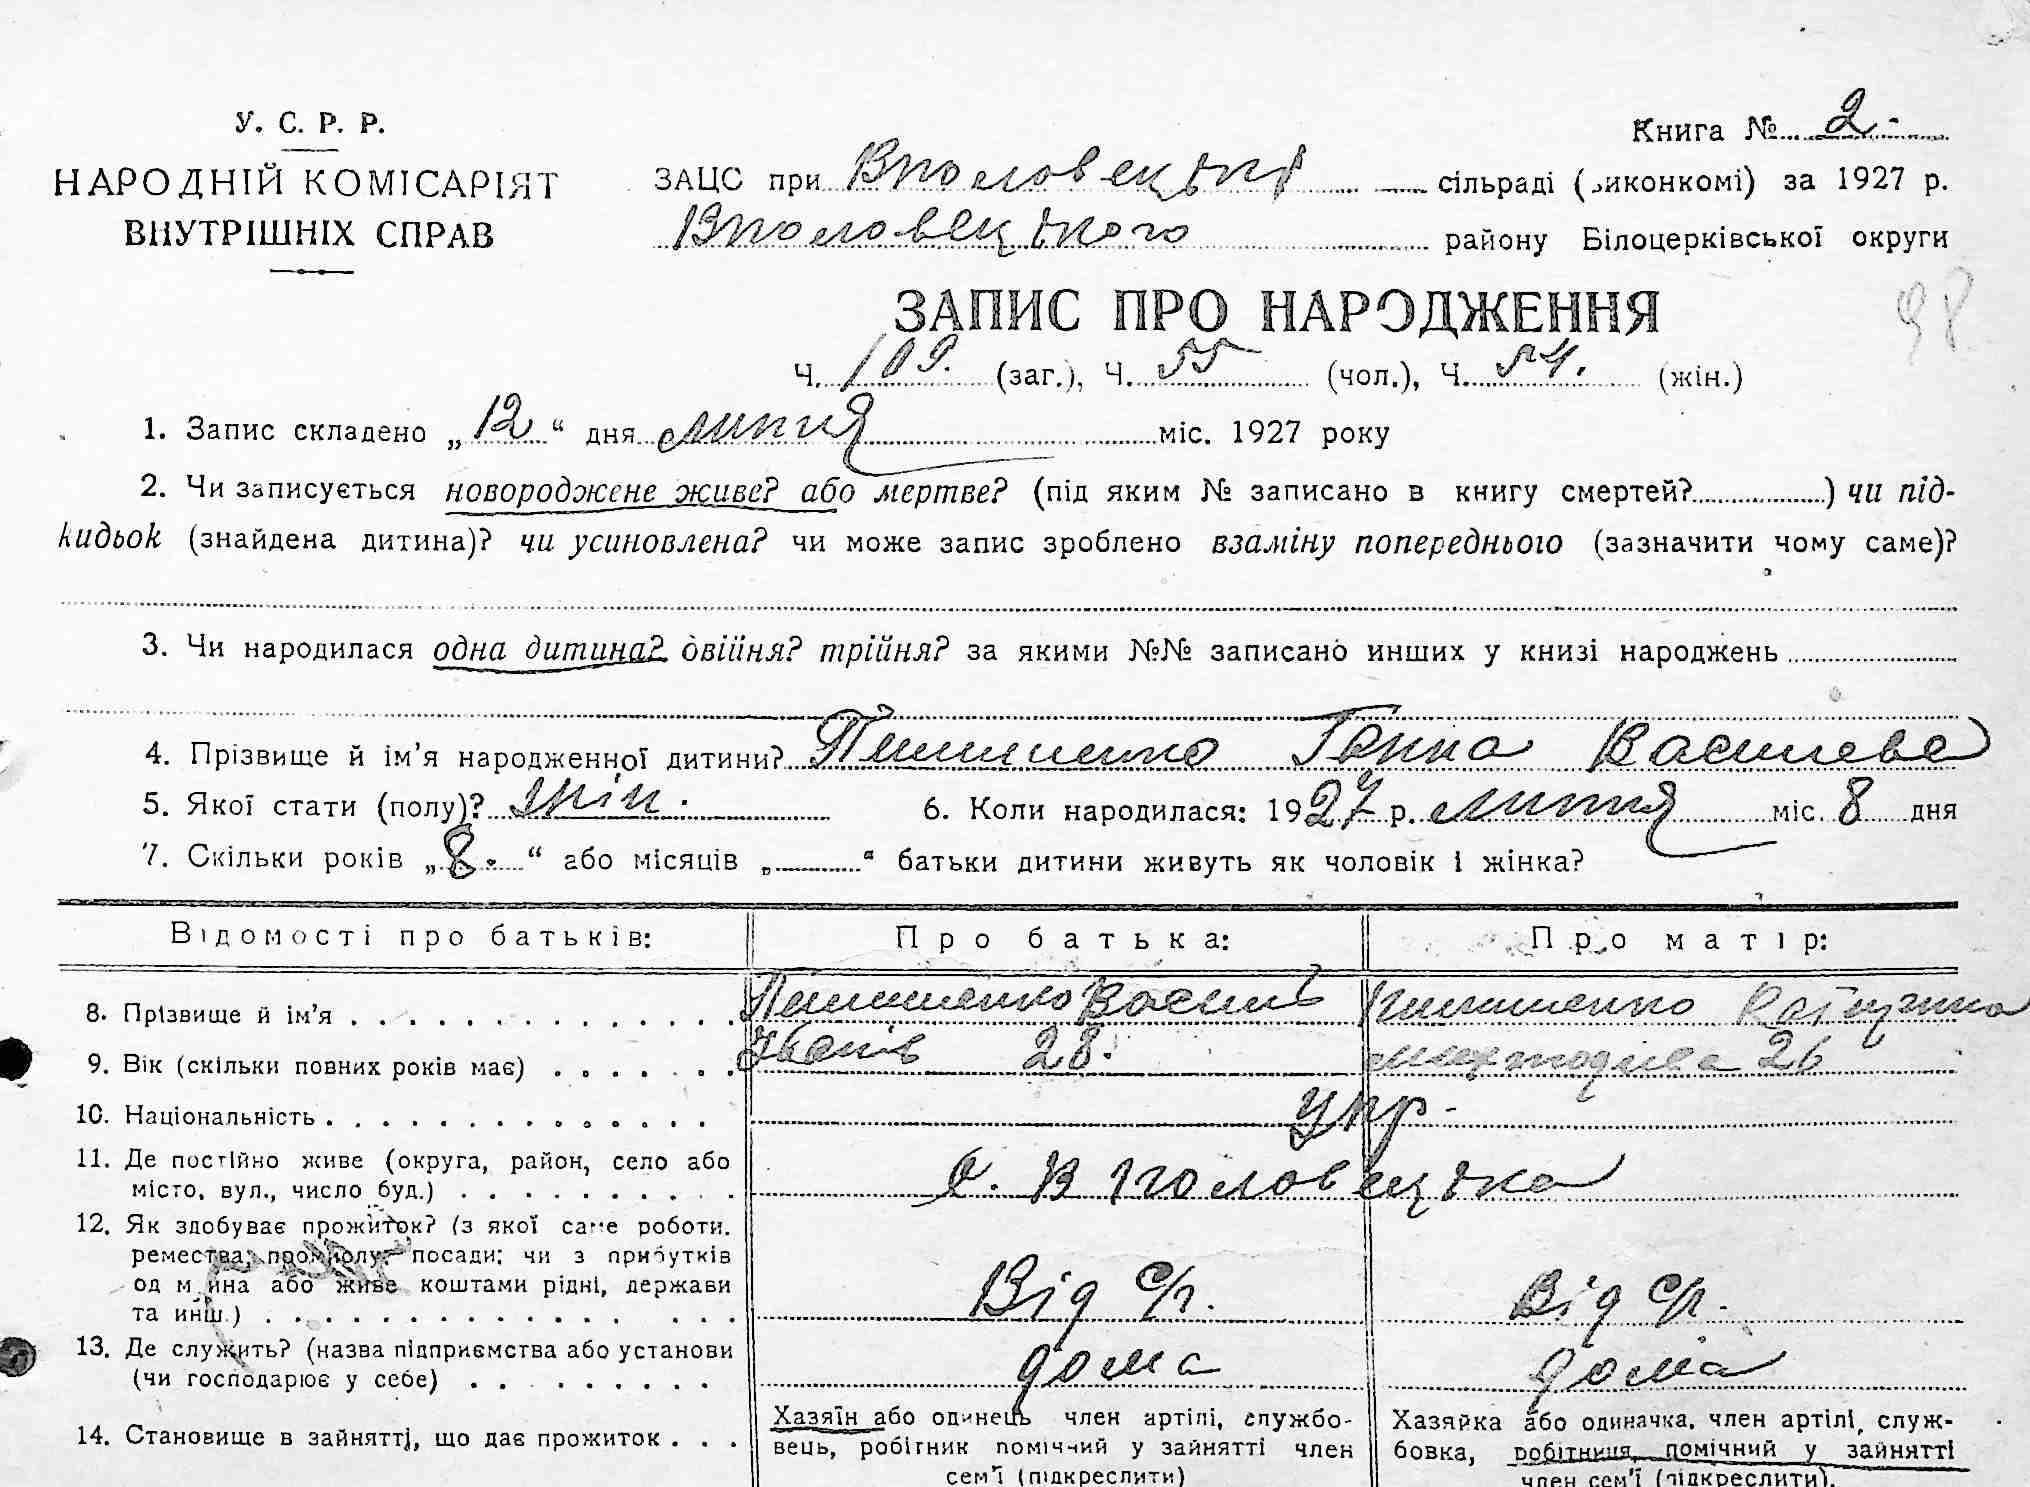 У. С. Р. Р.
НАРОДНІЙ КОМІСАРІЯТ
ВНУТРІШНІХ СПРАВ
Книга № 2.
ЗАЦС при Вполовецькій сільраді (виконкомі) за 1927 р.
Вполовецького району Білоцерківської округи
98
ЗАПИС ПРО НАРОДЖЕННЯ
Ч. 109. (заг.), Ч. 55 (чол.), Ч. 54. (жін.)
1. Запис складено „12“ дня липня міс. 1927 року
2. Чи записується новороджене живе? або мертве? (під яким № записано в книгу смертей?) чи під-
кидьок (знайдена дитина)? чи усиновлена? чи може запис зроблено взаміну попереднього (зазначити чому саме)?
3. Чи народилася одна дитина? двійня? трійня? за якими №№ записано инших у книзі народжень
4. Прізвище й ім’я народженної дитини? Ганна Василева
5. Якої стати (полу)? жін. 6. Коли народилася: 1927 р. липня міс. 8 дня
7. Скільки років „8.“ або місяців „ “ батьки дитини живуть як чоловік і жінка?
Відомості про батьків: Про батька: Про матір:
8. Прізвище й ім’я Василь Катерина
9. Вік (скільки повних років має) Іванів 28. 26
10. Національність Укр.
11. Де постійно живе (округа, район, село або
місто, вул., число буд.) с. Вполовецька
12. Як здобуває прожиток? (з якої саме роботи,
ремества, промислу, посади; чи з прибутків
од майна або живе коштами рідні, держави
та инш.) Від с/г. Від с/г.
13. Де служить? (назва підприємства або установи
(чи господарює у себе) дома дома
14. Становище в зайнятті, що дає прожиток
Хазяїн або одинець член артілі, службо-
вець, робітник помічний у зайнятті член
сем’ї (підкреслити)
Хазяйка або одиначка, член артілі, служ-
бовка, робітниця, помічний у зайнятті
член сем’ї (підкреслити).